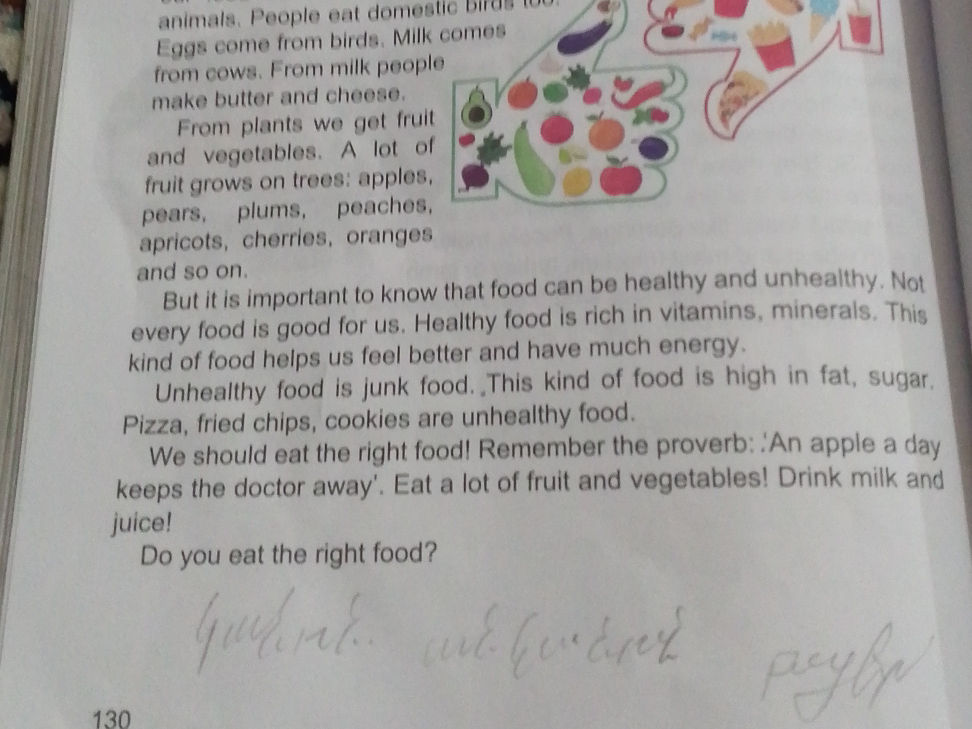 animals. People eat domestic birds too.
Eggs come from birds. Milk comes
from cows. From milk people
make butter and cheese.
From plants we get fruit
and vegetables. A lot of
fruit grows on trees: apples,
pears, plums, peaches,
apricots, cherries, oranges
and so on.
But it is important to know that food can be healthy and unhealthy. Not
every food is good for us. Healthy food is rich in vitamins, minerals. This
kind of food helps us feel better and have much energy.
Unhealthy food is junk food. This kind of food is high in fat, sugar.
Pizza, fried chips, cookies are unhealthy food.
We should eat the right food! Remember the proverb: 'An apple a day
keeps the doctor away'. Eat a lot of fruit and vegetables! Drink milk and
juice!
Do you eat the right food?
130